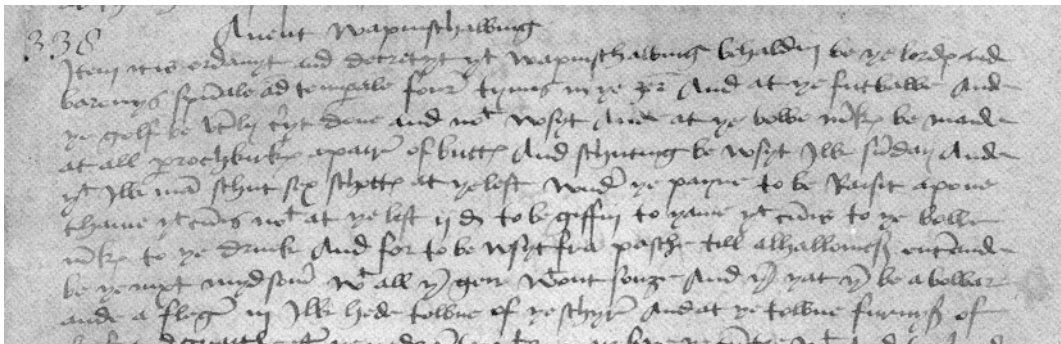 338 Anent wapinschawing
Item it is ordanyt and decretyt yt wapinschawing be haldin be ye lordꝭ and
baronys spūale ad tempale four tymis in ye ȝer And at ye futbawe And
ye golf be vtr̄ly cryt done and not wsyt And at ye bowe mrkꝭ be maide
at all prochkirkꝭ a pair of buttꝭ And schuting be wsyt Ilk sūday And
yt Ilk mā schut sex schottꝭ at ye lest wndr ye payne to be Raisit apone
thame yt cūis not at ye lest ij d to be giffin to yame yt cūis to ye bowe
mrkꝭ to ye drink And for to be wsyt fra pasche till alhallomeß
be ye nixt mydsomr wt all yr geir wtout sonȝe And yat yr be a bowar
ande a flegear in Ilk hede towne of ye schyre And at ye towne furnyß of